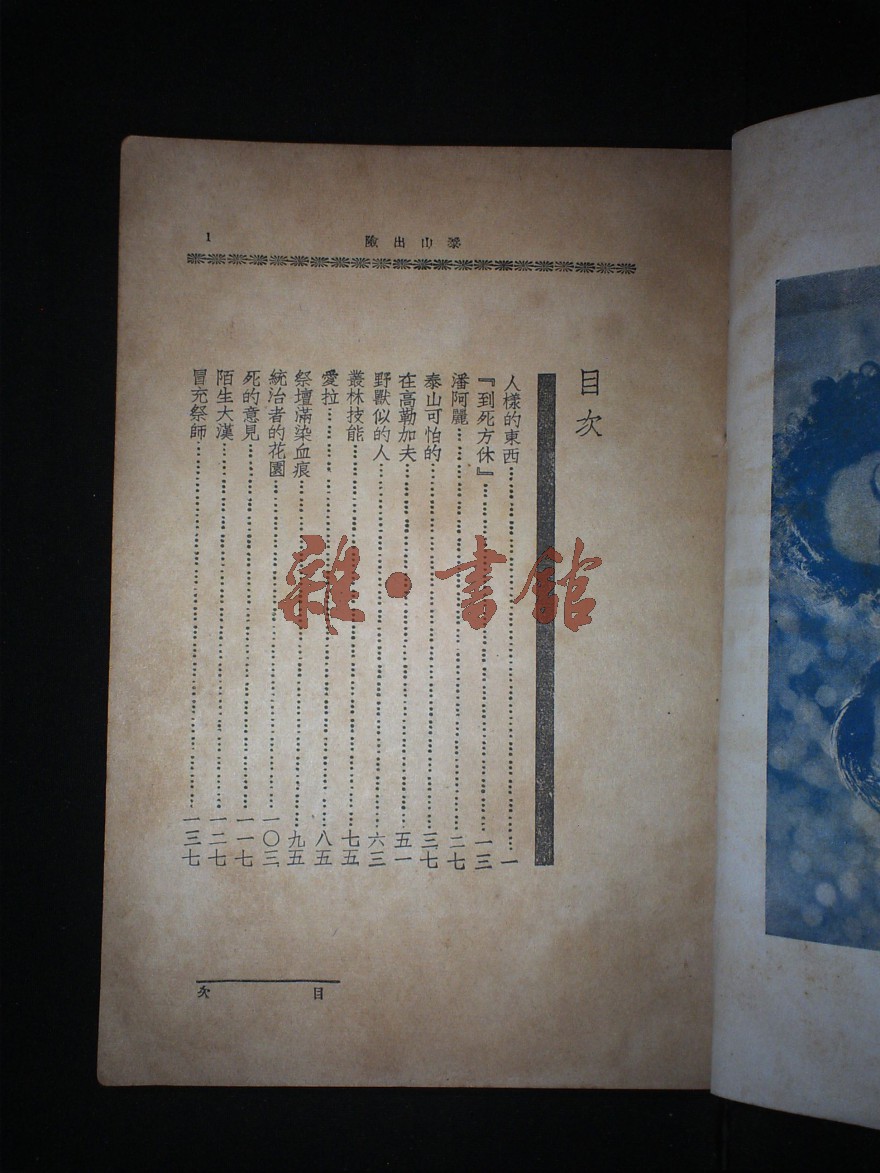 險出山泰
1
目次
人樣的東西……一
『到死方休』……一三
潘阿麗……二七
泰山可怕的……三七
在高勒加夫……五一
野獸似的人……六三
叢林技能……七五
愛拉……八五
祭壇滿染血痕……九五
統治者的花園……一〇三
死的意見……一一七
陌生大漢……一二七
冒充祭師……一三七
次目
雜·書館